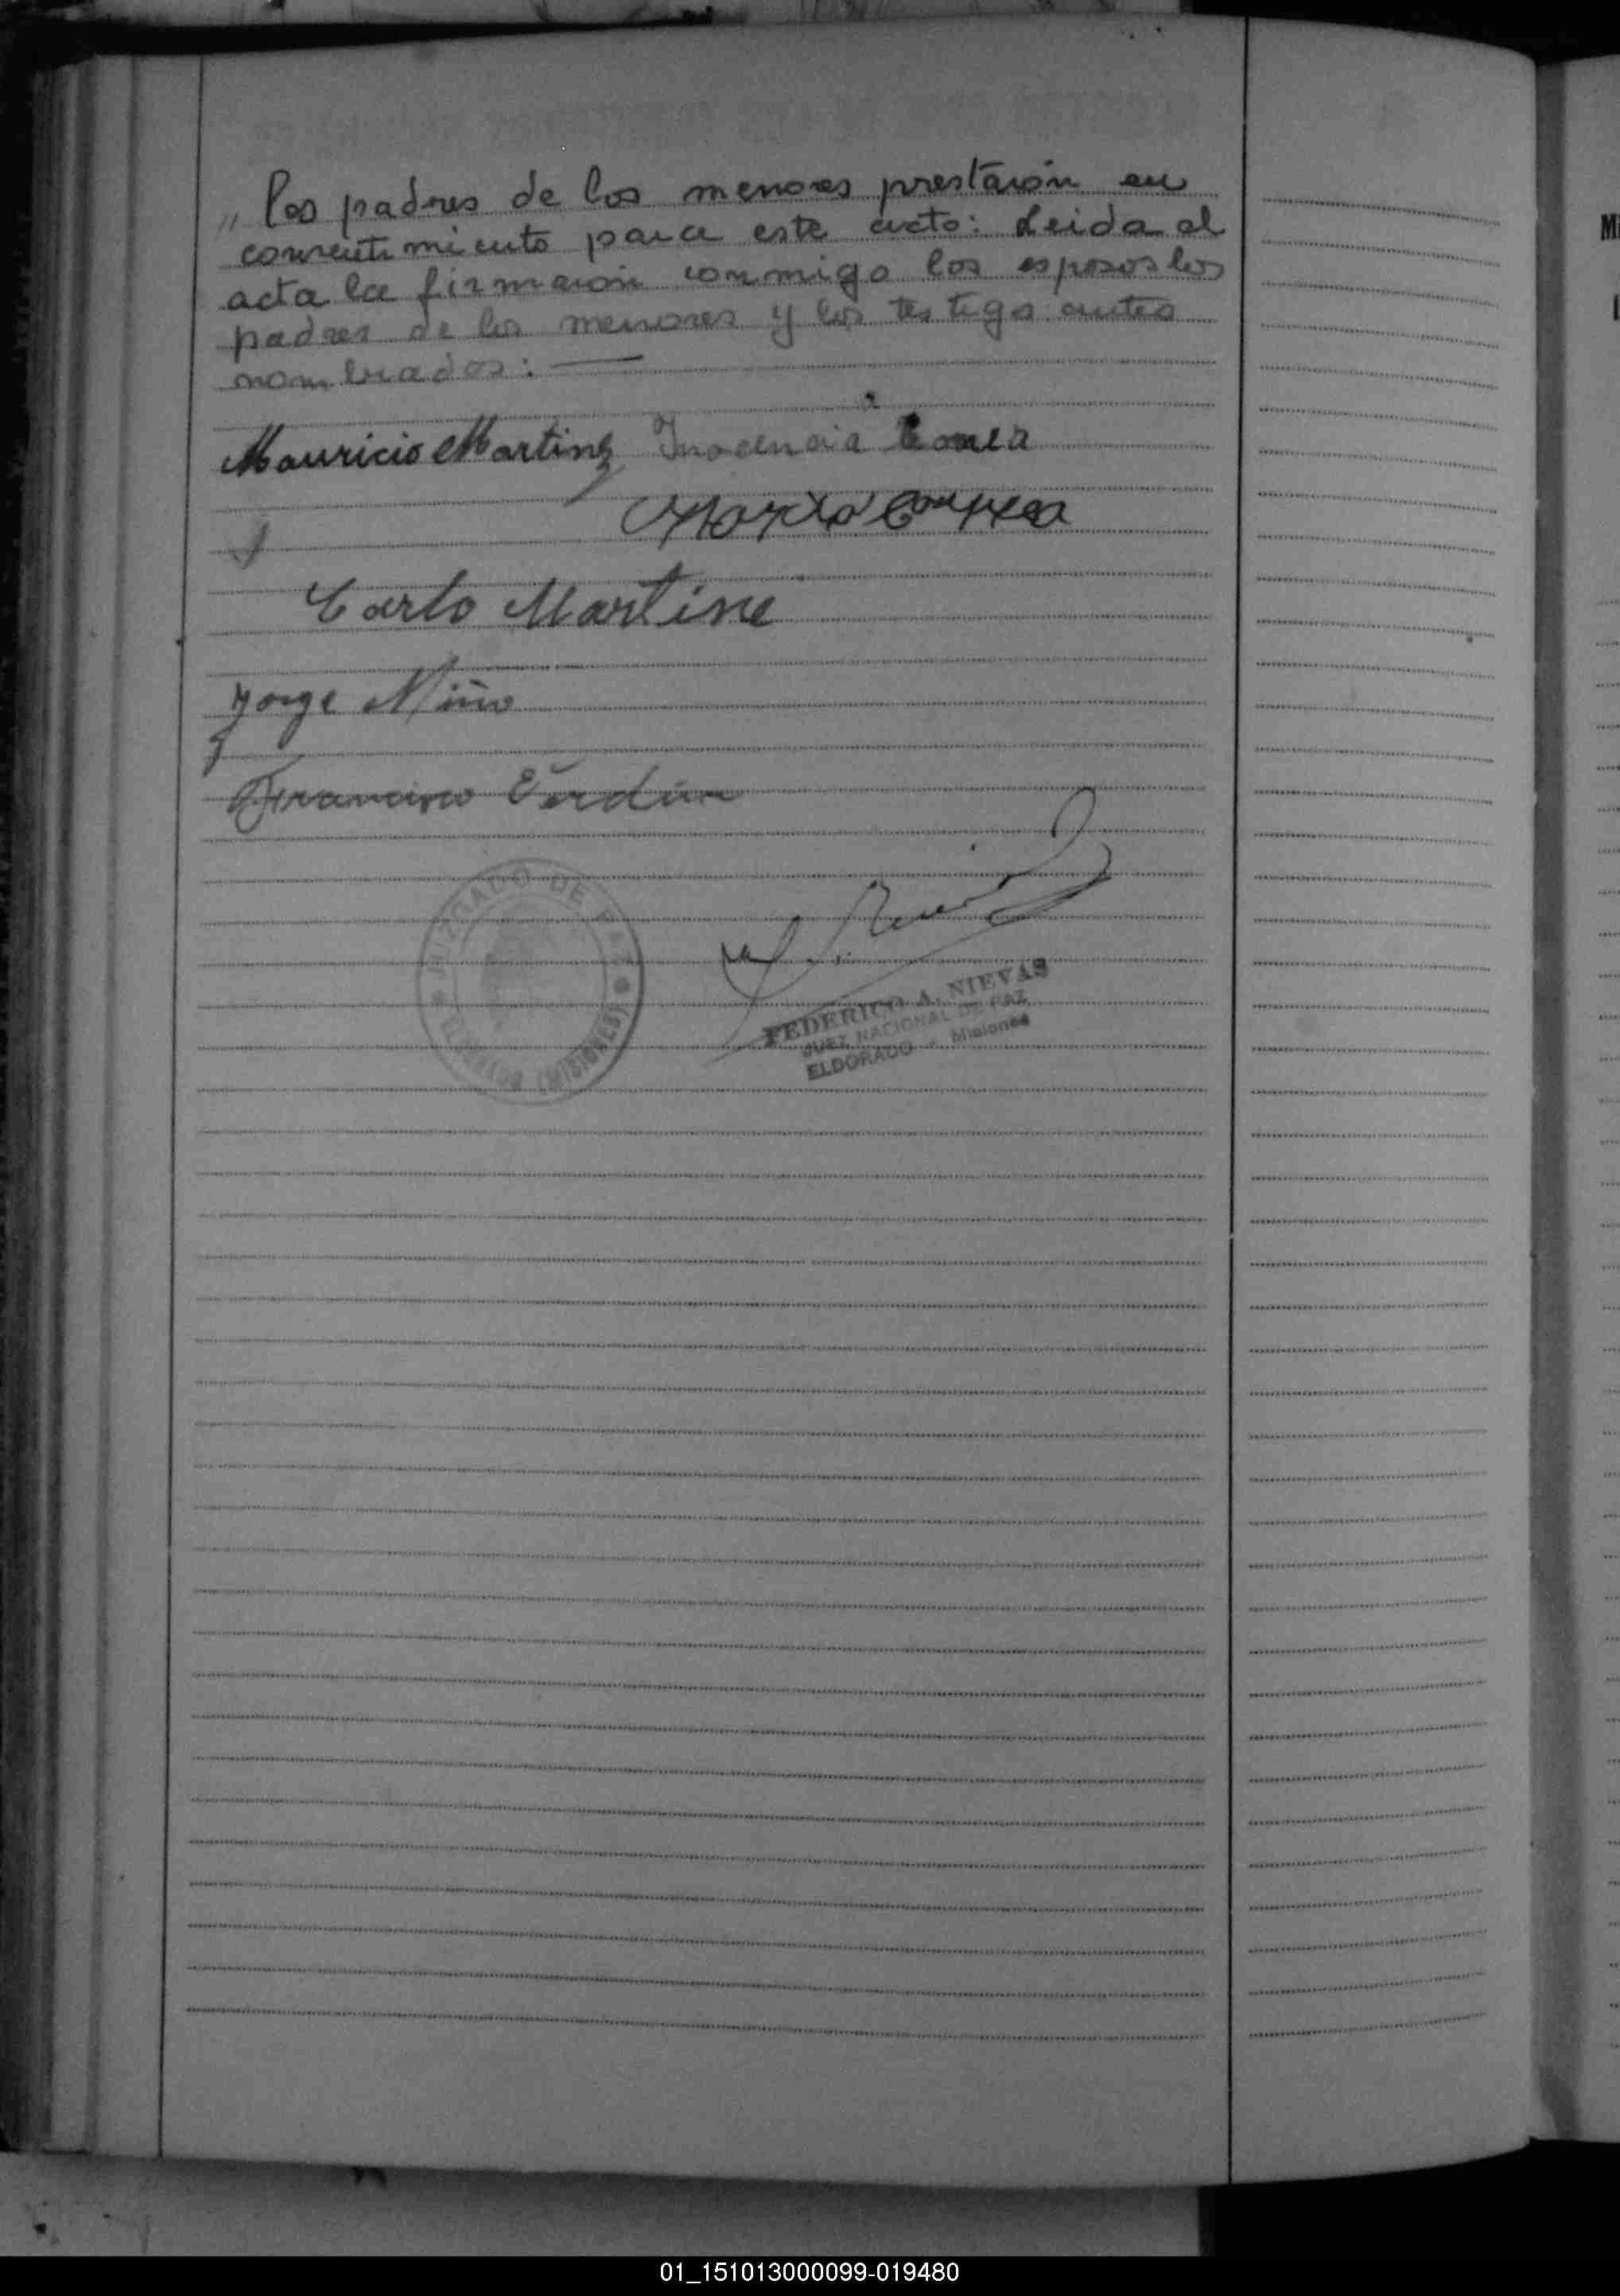 " los padres de los menores prestarón su
consentimiento para este acto: Leida el
acta la firmarón conmigo los esposos los
padres de los menores y los testigo antes
nombrados: —
Mauricio Martinz Inocencia Correa
Mario Correa
Carlo Martine
Jorge Niño
Francisco Verdún
JUZGADO DE PAZ
ELDORADO (MISIONES)
FEDERICO A. NIEVAS
JUEZ NACIONAL DE PAZ
ELDORADO - Misiones
M
01_151013000099-019480